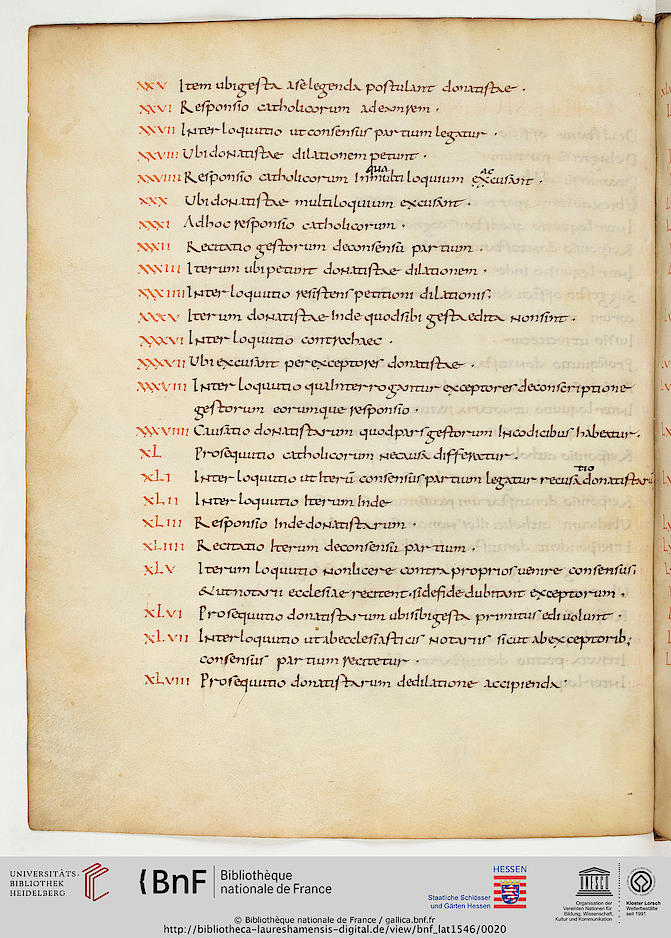 XXV Item ubi gesta a se legenda postulant donatistae .
XXVI Responsio catholicorum ad eandem .
XXVII Interloquutio ut consensus partium legatur .
XXVIII Ubi donatistae dilationem petunt .
XXVIIII Responsio catholicorum In qua multiloquium excusant .
XXX Ubi donatistae multiloquium excusant .
XXXI Ad hoc responsio catholicorum .
XXXII Recitatio gestorum de consensu partium .
XXXIII Iterum ubi petunt donatistae dilationem .
XXXIIII Interloquutio resistens petitioni dilationis ;
XXXV Iterum donatistae Inde quod sibi gesta edita non sint .
XXXVI Interloquutio contra haec .
XXXVII Ubi excusant per exceptores donatistae .
XXXVIII Interloquutio qua Interrogantur exceptores de conscriptione
gestorum eorumque responsio .
XXXVIIII Causatio donatistarum quod pars gestorum In codicibus habeatur .
XL Prosequutio catholicorum ne causa differetur .
XLI Interloquutio ut Iterū consensus partium legatur recusatio donatistarū
XLII Interloquutio Iterum Inde
XLIII Responsio Inde donatistarum .
XLIIII Recitatio Iterum de consensu partium .
XLV Iterum loquutio non licere contra proprios venire consensus ;
& ut notarii ecclesiae recitent . si de fide dubitant exceptorum .
XLVI Prosequutio donatistarum ubi sibi gesta primitus edi volunt .
XLVII Interloquutio ut ab ecclesiasticis notariis sicut ab exceptorib;
consensus partium recitetur .
XLVIII Prosequutio donatistarum de dilatione accipienda .
UNIVERSITÄTS-
BIBLIOTHEK
HEIDELBERG
BnF
Bibliothèque
nationale de France
Staatliche Schlösser
und Gärten Hessen
HESSEN
UNESCO
Organisation der
Vereinten Nationen für
Bildung, Wissenschaft,
Kultur und Kommunikation
Kloster Lorsch
Welterbestätte
seit 1991
© Bibliothèque nationale de France / gallica.bnf.fr
http://bibliotheca-laureshamensis-digital.de/view/bnf_lat1546/0020